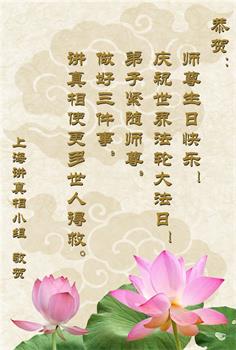 恭贺：
师尊生日快乐！
庆祝世界法轮大法日！
弟子紧随师尊，
做好三件事，
讲真相使更多世人得救。
上海讲真相小组 敬贺